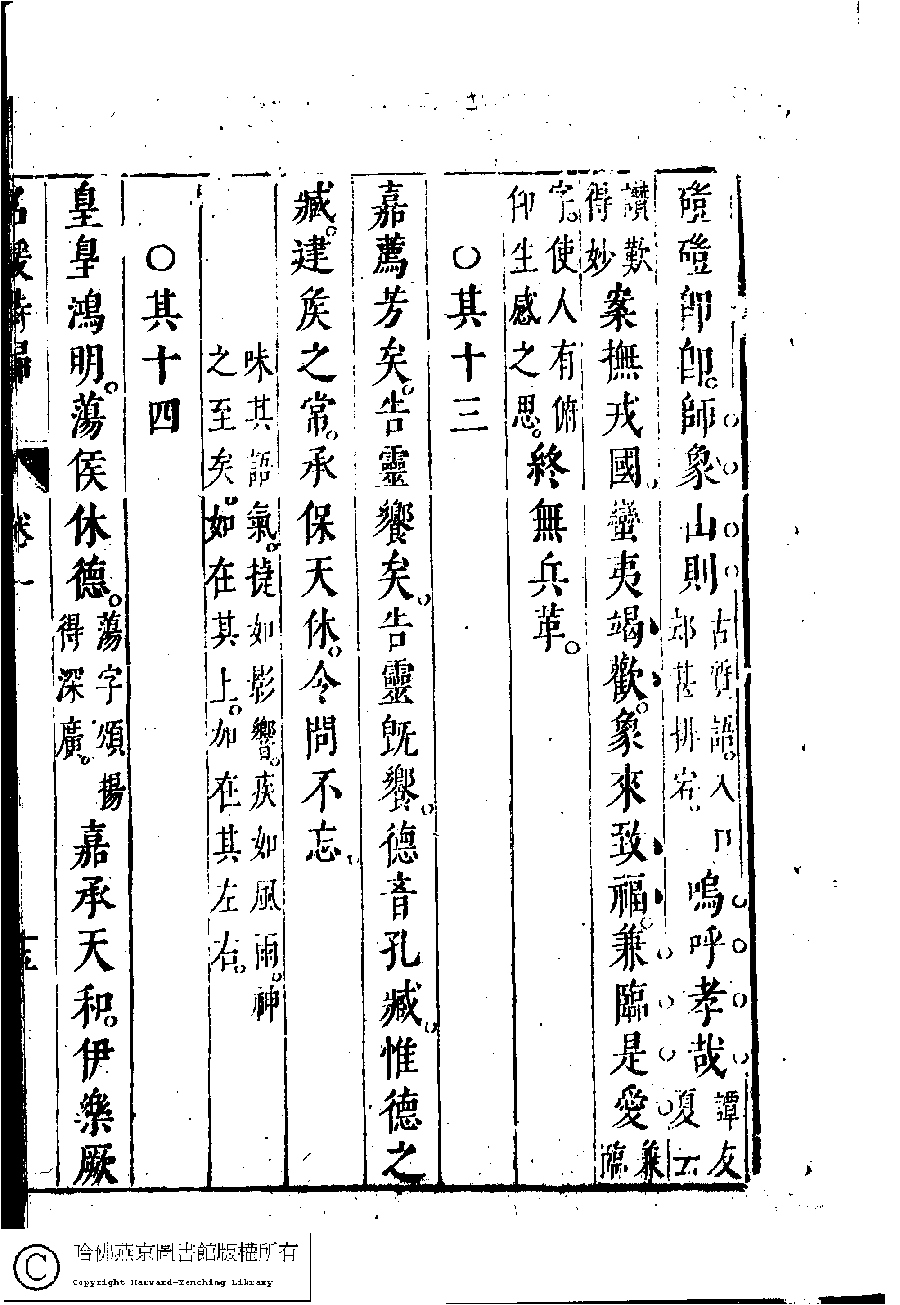 磑磑即即。師象山則古質語。入口却甚排宕。嗚呼孝哉譚友夏云
讚歎得妙案撫戎國。蠻夷竭歡。象來致福。兼臨是愛兼臨
字。使人有俯仰生感之思。終無兵革。
○其十三
嘉薦芳矣。告靈饗矣。告靈旣饗。德音孔臧。惟德之
臧。建矦之常。承保天休。令問不忘。
味其語氣。捷如影響。疾如風雨。神
之至矣。如在其上。如在其左右。
○其十四
皇皇鴻明。蕩侯休德。蕩字頌揚得深廣。嘉承天和。伊樂厥
名媛詩歸 卷一 十五
哈佛燕京圖書館版權所有
Copyright Harvard-Yenching Library